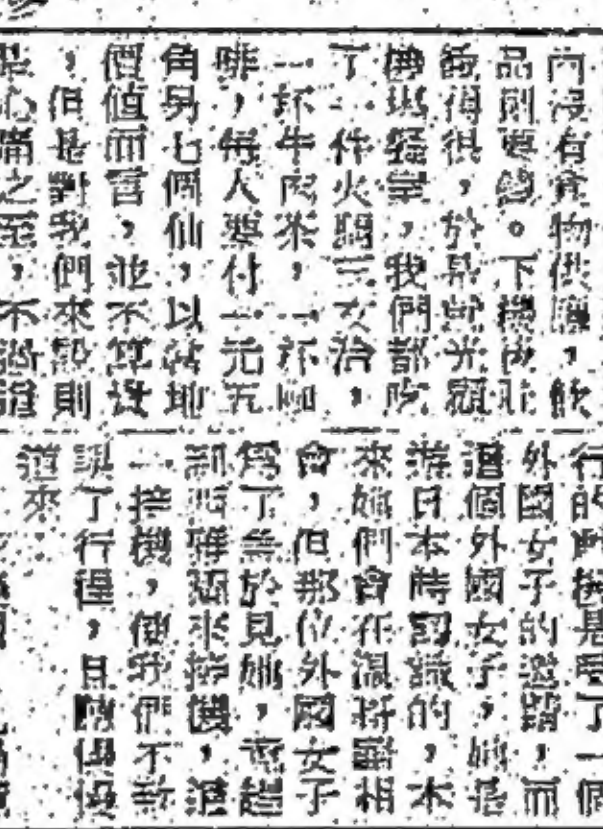 內沒有食物供應,飲
品則要錢。下機後肚
餓得很,於是便光顧
機場餐室,我們都吃
了一件火腿三文治,
一杯牛肉茶,一杯咖
啡,每人要付一元五
角另七個仙,以當地
價值而言,並不算貴
,但是對我們來說則
是心痛之至,不過誰
行的時候是受了一個
外國女子的邀請,而
這個外國女子,她是
遊日本時認識的,本
來她們會在溫哥華相
會,但那位外國女子
爲了急於見她,竟趕
到西雅圖來接機,這
一接機,使我們不
誤了行程,且
道來